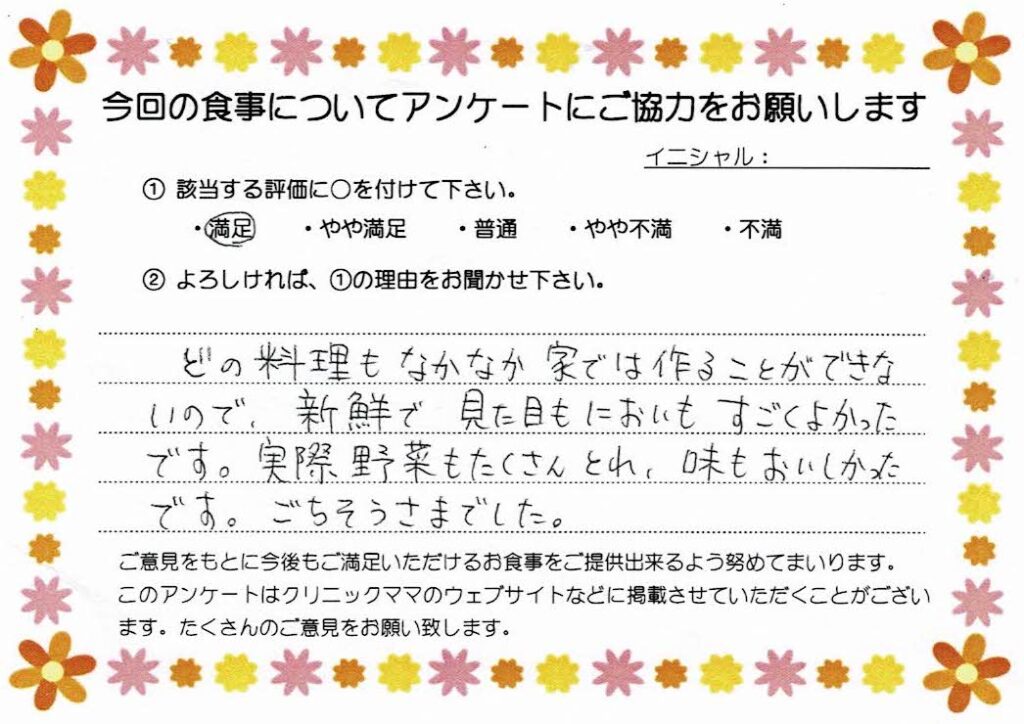 今回の食事についてアンケートにご協力をお願いします
イニシャル：
① 該当する評価に○を付けて下さい。
・満足 ・やや満足 ・普通 ・やや不満 ・不満
② よろしければ、①の理由をお聞かせ下さい。
どの料理もなかなか家では作ることができな
いので、新鮮で見た目もにおいもすごくよかった
です。実際野菜もたくさんとれ、味もおいしかった
です。ごちそうさまでした。
ご意見をもとに今後もご満足いただけるお食事をご提供出来るよう努めてまいります。
このアンケートはクリニックママのウェブサイトなどに掲載させていただくことがござい
ます。たくさんのご意見をお願い致します。